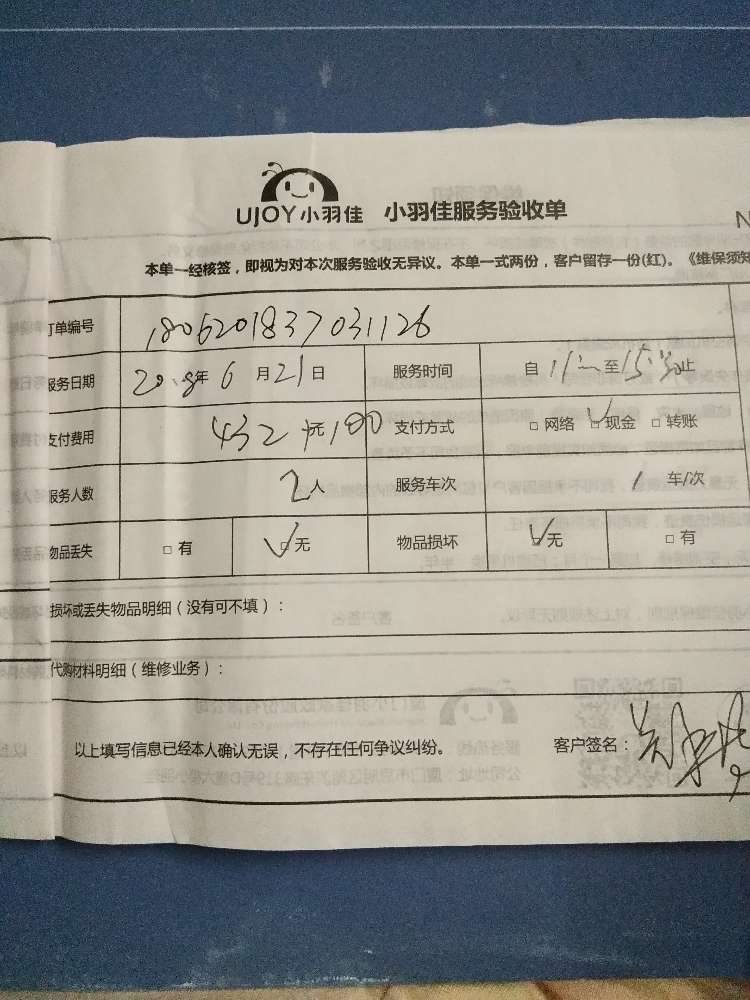 UJOY小羽佳 小羽佳服务验收单
N
本单一经核签，即视为对本次服务验收无异议。本单一式两份，客户留存一份(红)。《维保须知
订单编号 1806201837031126
服务日期 2018年 6 月 21 日 服务时间 自 至 止
支付费用 432 元 100 支付方式 □ 网络 □ 现金 □ 转账
服务人数 2人 服务车次 1 车/次
物品丢失 □ 有 □ 无 物品损坏 □ 无 □ 有
损坏或丢失物品明细（没有可不填）：
代购材料明细（维修业务）：
以上填写信息已经本人确认无误，不存在任何争议纠纷。 客户签名：